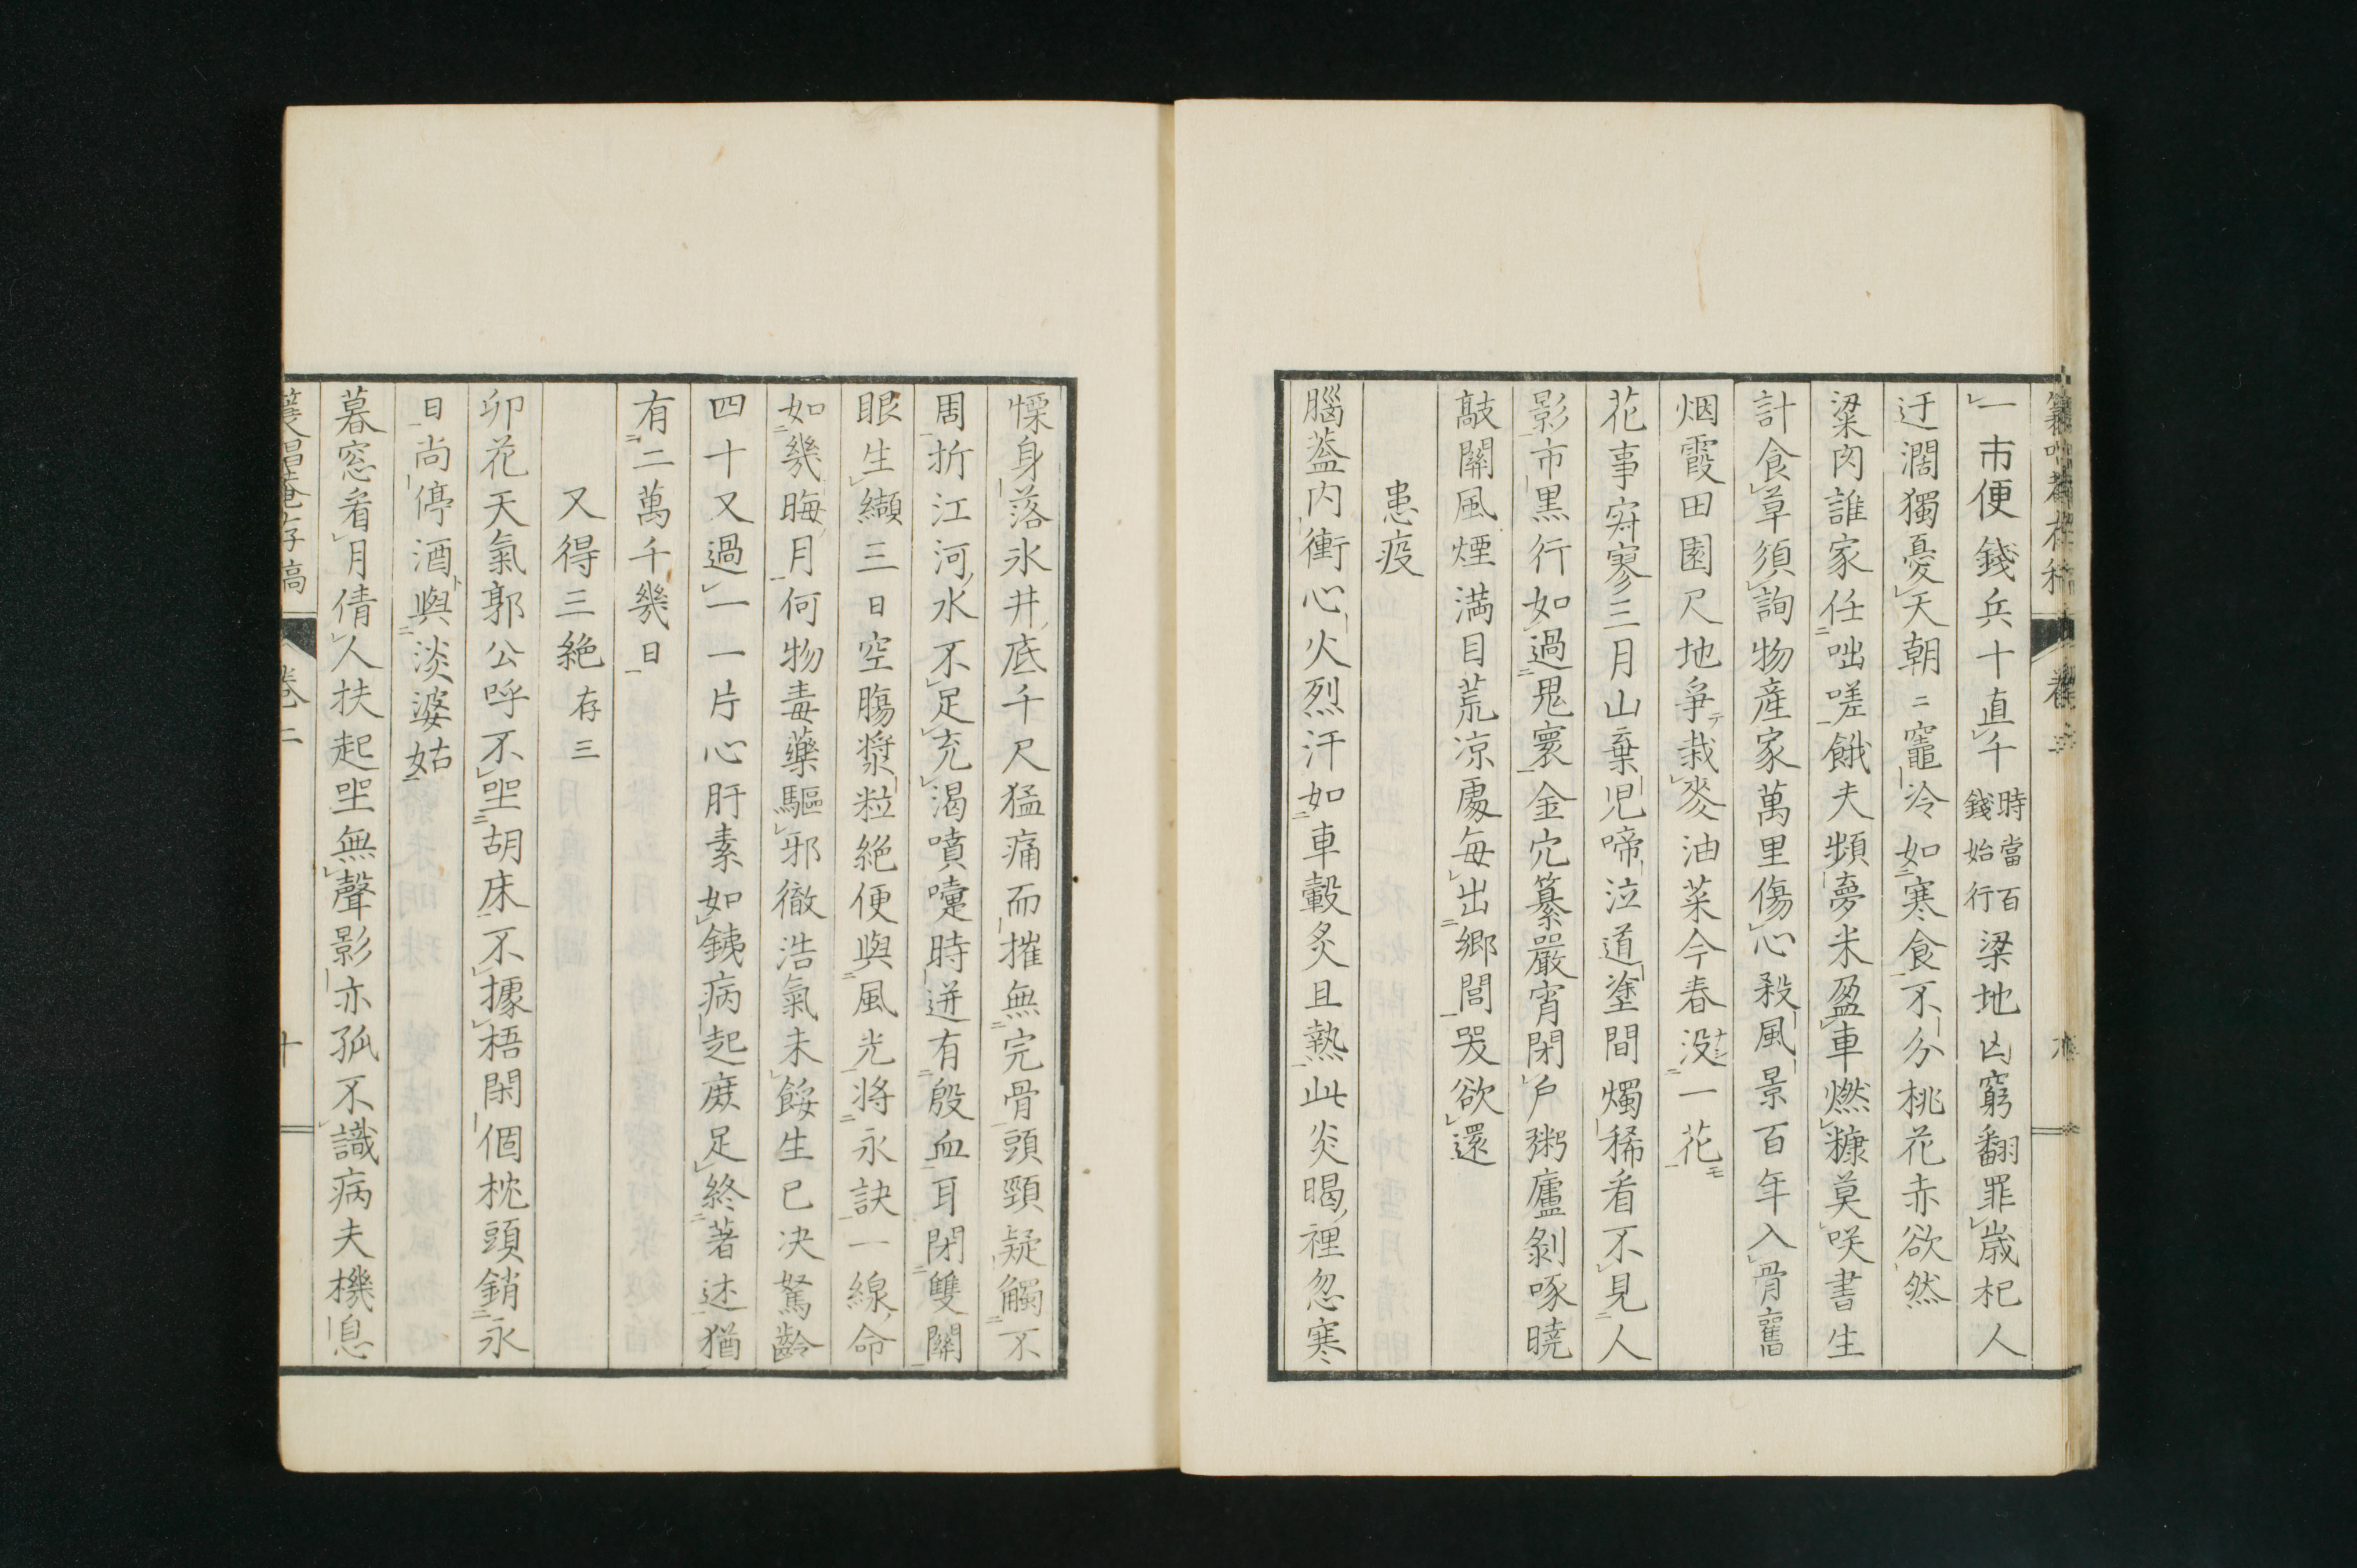 一市便錢兵十直千時當百錢始行梁地凶窮翻罪歳杞人
迂濶獨憂天朝ニ竈冷如寒食不分桃花赤欲然
粱肉誰家任咄嗟餓夫頻夢米盈車燃糠莫咲書生
計食草須詢物産家萬里傷心殺風景百年入骨舊
烟霞田園尺地爭栽麥油菜今春没一花
花事寂寥三月山棄児啼泣道塗間燭稀看不見人
影市黒行如過鬼寰金穴纂嚴宵閉戶粥廬剝啄曉
敲關風煙満目荒凉處毎出郷閭哭欲還
患疫
腦蓋内衝心火烈汗如車轂炙且熱此炎暍裡忽寒
慄身落氷井底千尺猛痛而摧無完骨頭頸疑觸不
周折江河水不足充渴噴嚏時迸有殷血耳閉雙關
眼生纈三日空腸漿粒絶便與風光將永訣一線命
如幾晦月何物毒藥驅邪徹浩氣未餒生已决駑齡
四十又過一一片心肝素如銕病起庶足終著述猶
有二萬千幾日
又得三絶存三
卯花天氣郭公呼不坐胡床不據梧閑個枕頭銷永
日尚停酒與淡婆姑
暮窓看月倩人扶起坐無聲影亦孤不識病夫機息
卷二
十